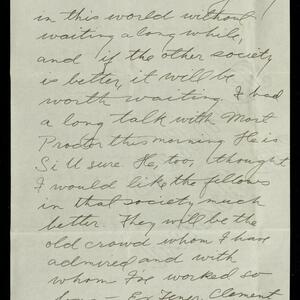 in this world without
waiting a long while,
and if the other society
is better, it will be
worth waiting. I had
a long talk with Mort
Proctor this morning He is
Si U sure. He, too, thought
I would like the fellows
in that society much
better. They will be the
old crowd whom I have
admired and with
whom I've worked so
Clement